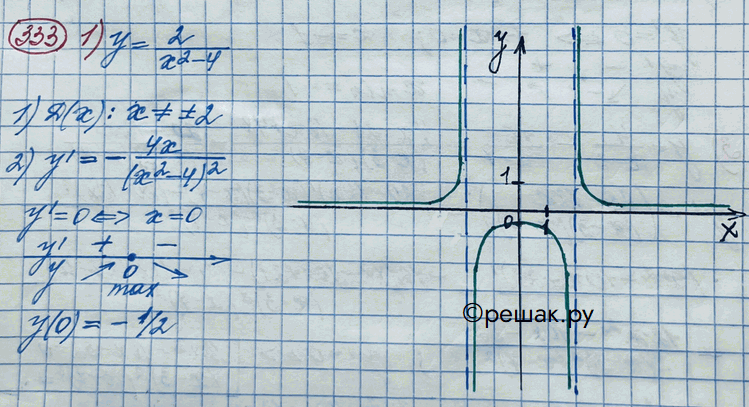 333 1) y = 2/(x²-4)
1) D(x): x ≠ ±2
2) y' = - 4x/(x²-4)²
y' = 0 <=> x = 0
y' + -
y 0
max
y(0) = -1/2
y
1
0 1
x
©решак.ру